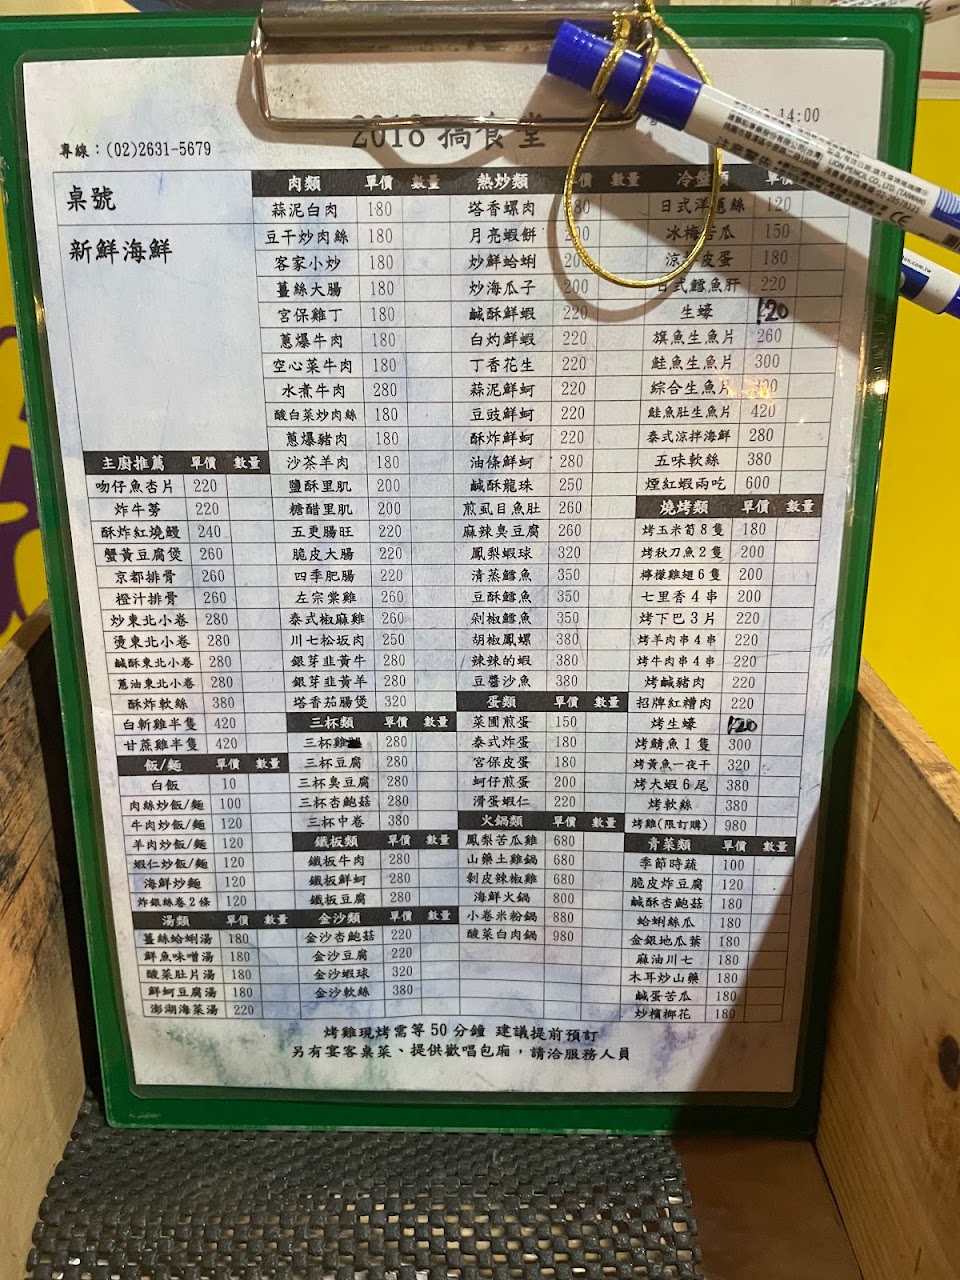 2018 搞食堂
14:00
專線：(02)2631-5679
桌號
新鮮海鮮
主廚推薦 單價 數量
吻仔魚杏片 220
炸牛蒡 220
酥炸紅燒鰻 240
蟹黃豆腐煲 260
京都排骨 260
橙汁排骨 260
炒東北小卷 280
燙東北小卷 280
鹹酥東北小卷 280
蔥油東北小卷 280
酥炸軟絲 380
白斬雞半隻 420
甘蔗雞半隻 420
飯/麵 單價 數量
白飯 10
肉絲炒飯/麵 100
牛肉炒飯/麵 120
羊肉炒飯/麵 120
蝦仁炒飯/麵 120
海鮮炒麵 120
炸銀絲卷2條 120
湯類 單價 數量
薑絲蛤蜊湯 180
鮮魚味噌湯 180
酸菜肚片湯 180
鮮蚵豆腐湯 180
澎湖海菜湯 220
肉類 單價 數量
蒜泥白肉 180
豆干炒肉絲 180
客家小炒 180
薑絲大腸 180
宮保雞丁 180
蔥爆牛肉 180
空心菜牛肉 180
水煮牛肉 280
酸白菜炒肉絲 180
蔥爆豬肉 180
沙茶羊肉 180
鹽酥里肌 200
糖醋里肌 200
五更腸旺 220
脆皮大腸 220
四季肥腸 220
左宗棠雞 260
泰式椒麻雞 260
川七松坂肉 250
銀芽韭黃牛 280
銀芽韭黃羊 280
塔香茄腸煲 320
三杯類 單價 數量
三杯雞 280
三杯豆腐 280
三杯臭豆腐 280
三杯杏鮑菇 280
三杯中卷 380
鐵板類 單價 數量
鐵板牛肉 280
鐵板鮮蚵 280
鐵板豆腐 280
金沙類 單價 數量
金沙杏鮑菇 220
金沙豆腐 220
金沙蝦球 320
金沙軟絲 380
熱炒類 單價 數量
塔香螺肉 180
月亮蝦餅 200
炒鮮蛤蜊 200
炒海瓜子 200
鹹酥鮮蝦 220
白灼鮮蝦 220
丁香花生 220
蒜泥鮮蚵 220
豆豉鮮蚵 220
酥炸鮮蚵 220
油條鮮蚵 280
鹹酥龍珠 250
煎虱目魚肚 260
麻辣臭豆腐 260
鳳梨蝦球 320
清蒸鱈魚 350
豆酥鱈魚 350
剁椒鱈魚 350
胡椒鳳螺 380
辣辣的蝦 380
豆醬沙魚 380
蛋類 單價 數量
菜圃煎蛋 150
泰式炸蛋 180
宮保皮蛋 180
蚵仔煎蛋 200
滑蛋蝦仁 220
火鍋類 單價 數量
鳳梨苦瓜雞 680
山藥土雞鍋 680
剝皮辣椒雞 680
海鮮火鍋 800
小卷米粉鍋 880
酸菜白肉鍋 980
冷盤類 單價
日式洋蔥絲 120
冰梅苦瓜 150
涼拌皮蛋 180
日式鱈魚肝 220
生蠔 120
旗魚生魚片 260
鮭魚生魚片 300
綜合生魚片 300
鮭魚肚生魚片 420
泰式涼拌海鮮 280
五味軟絲 380
煙紅蝦兩吃 600
燒烤類 單價 數量
烤玉米筍8隻 180
烤秋刀魚2隻 200
檸檬雞翅6隻 200
七里香4串 200
烤下巴3片 220
烤羊肉串4串 220
烤牛肉串4串 220
烤鹹豬肉 220
招牌紅糟肉 220
烤生蠔 120
烤鯖魚1隻 300
烤黃魚一夜干 320
烤大蝦6尾 380
烤軟絲 380
烤雞(限訂購) 980
青菜類 單價 數量
季節時蔬 100
脆皮炸豆腐 120
鹹酥杏鮑菇 180
蛤蜊絲瓜 180
金銀地瓜葉 180
麻油川七 180
木耳炒山藥 180
鹹蛋苦瓜 180
炒檳榔花 180
烤雞現烤需等50分鐘 建議提前預訂
另有宴客桌菜、提供歡唱包廂，請洽服務人員
LION PENCIL CO., LTD. (TAIWAN)
CE